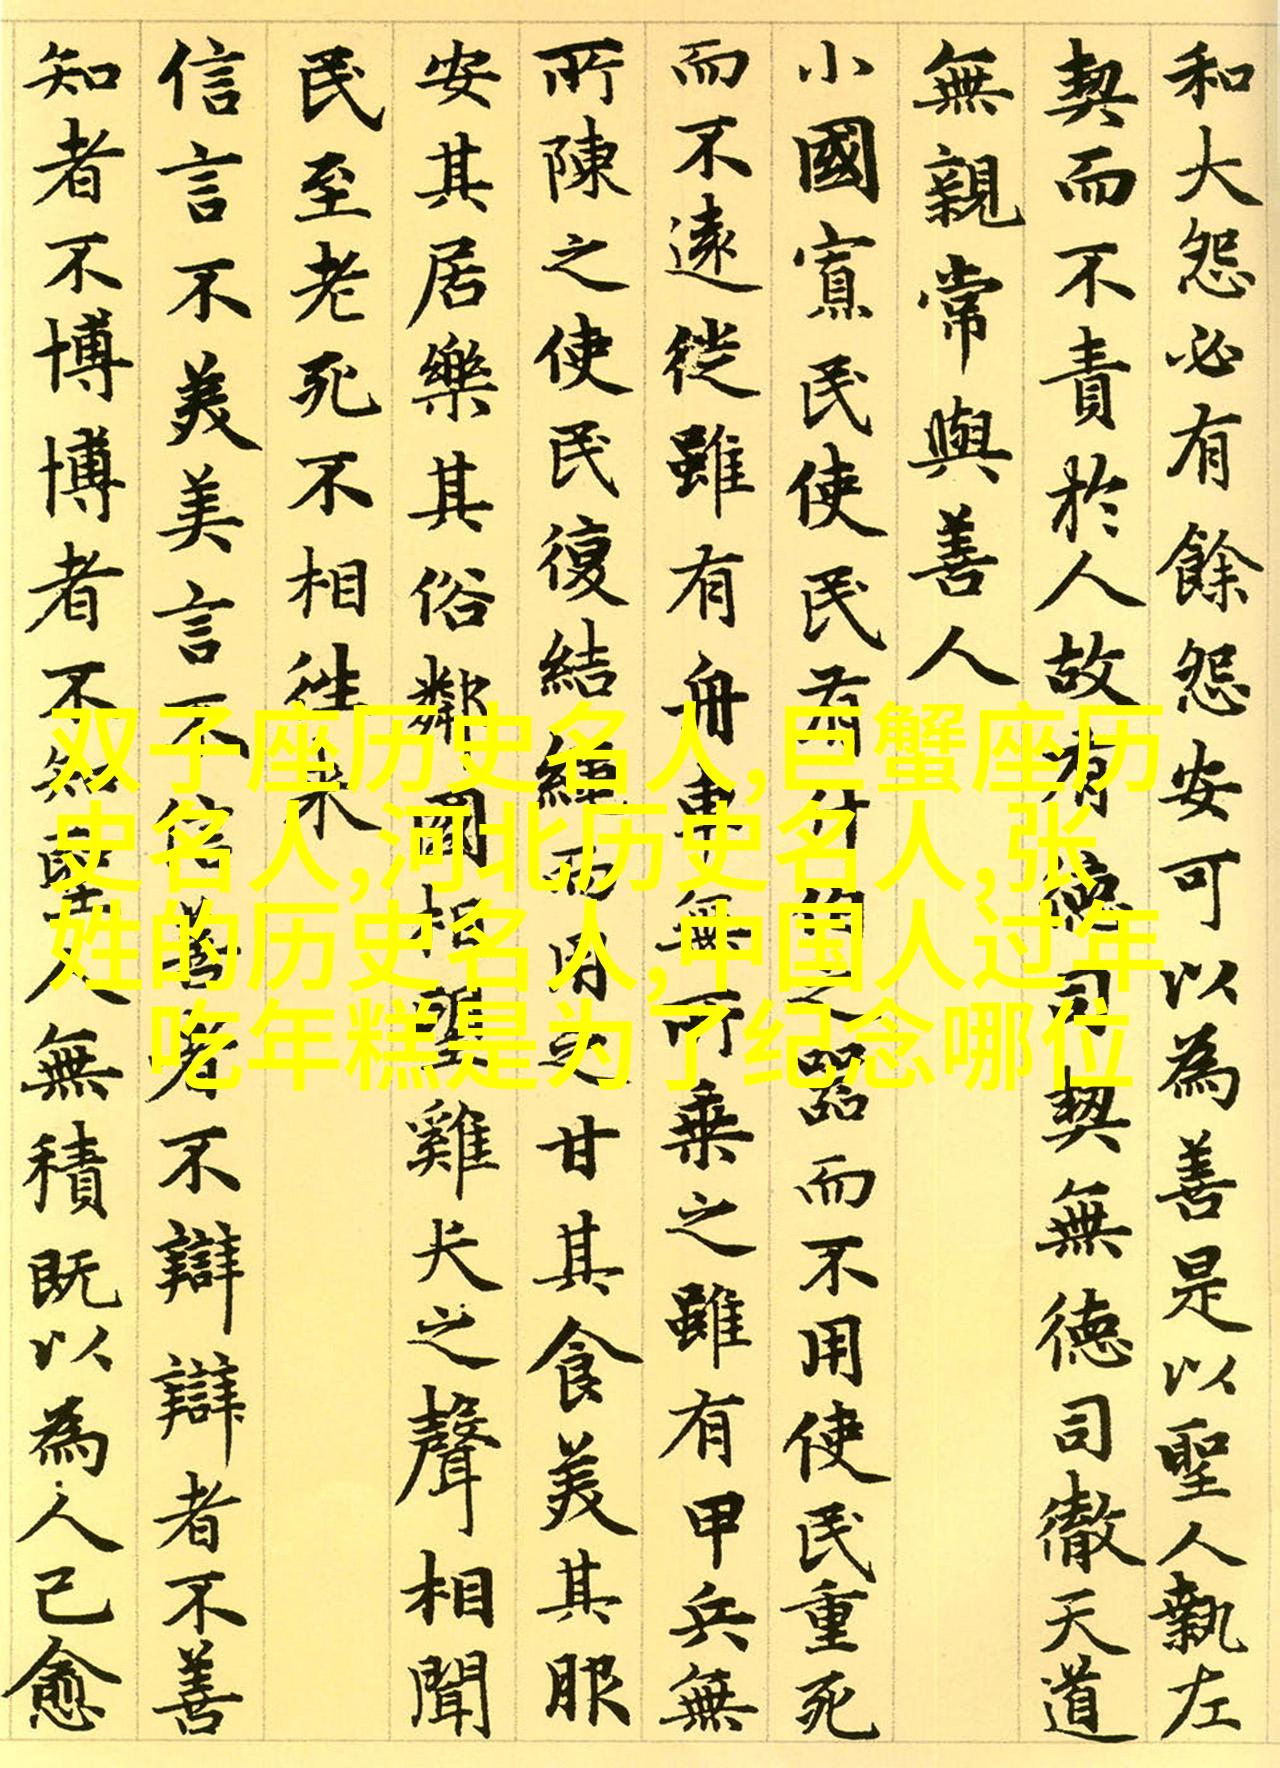 和大怨必有餘怨安可以為善是以聖人執左
契而不責於人故有德司契無德司徹天道
無親常與善人
小國寡民使民有什伯之器而不用使民重死
而不遠徙雖有舟車無所乗之雖有甲兵無
所陳之使民復結繩而用之甘其食美其服
安其居樂其俗鄰國相望雞犬之聲相聞
民至老死不相往来
信言不美美言不信善者不辯辯者不善
知者不博博者不知聖人無積既以為人己愈
双子座历史名人,巨蟹座历
史名人,河北历史名人,张
姓的历史名人,中国人过年
吃年糕是为了纪念哪位